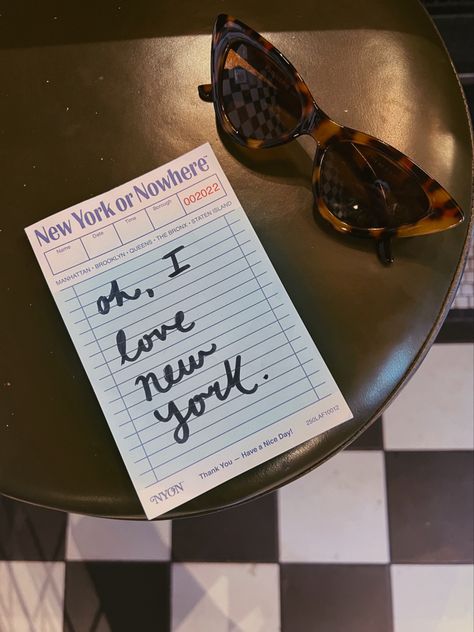 New York or Nowhere™
Name Date Time Borough 002022
MANHATTAN • BROOKLYN • QUEENS • THE BRONX • STATEN ISLAND
oh, I
love
new
york.
250LAFY0012
Thank You — Have a Nice Day!
NYON